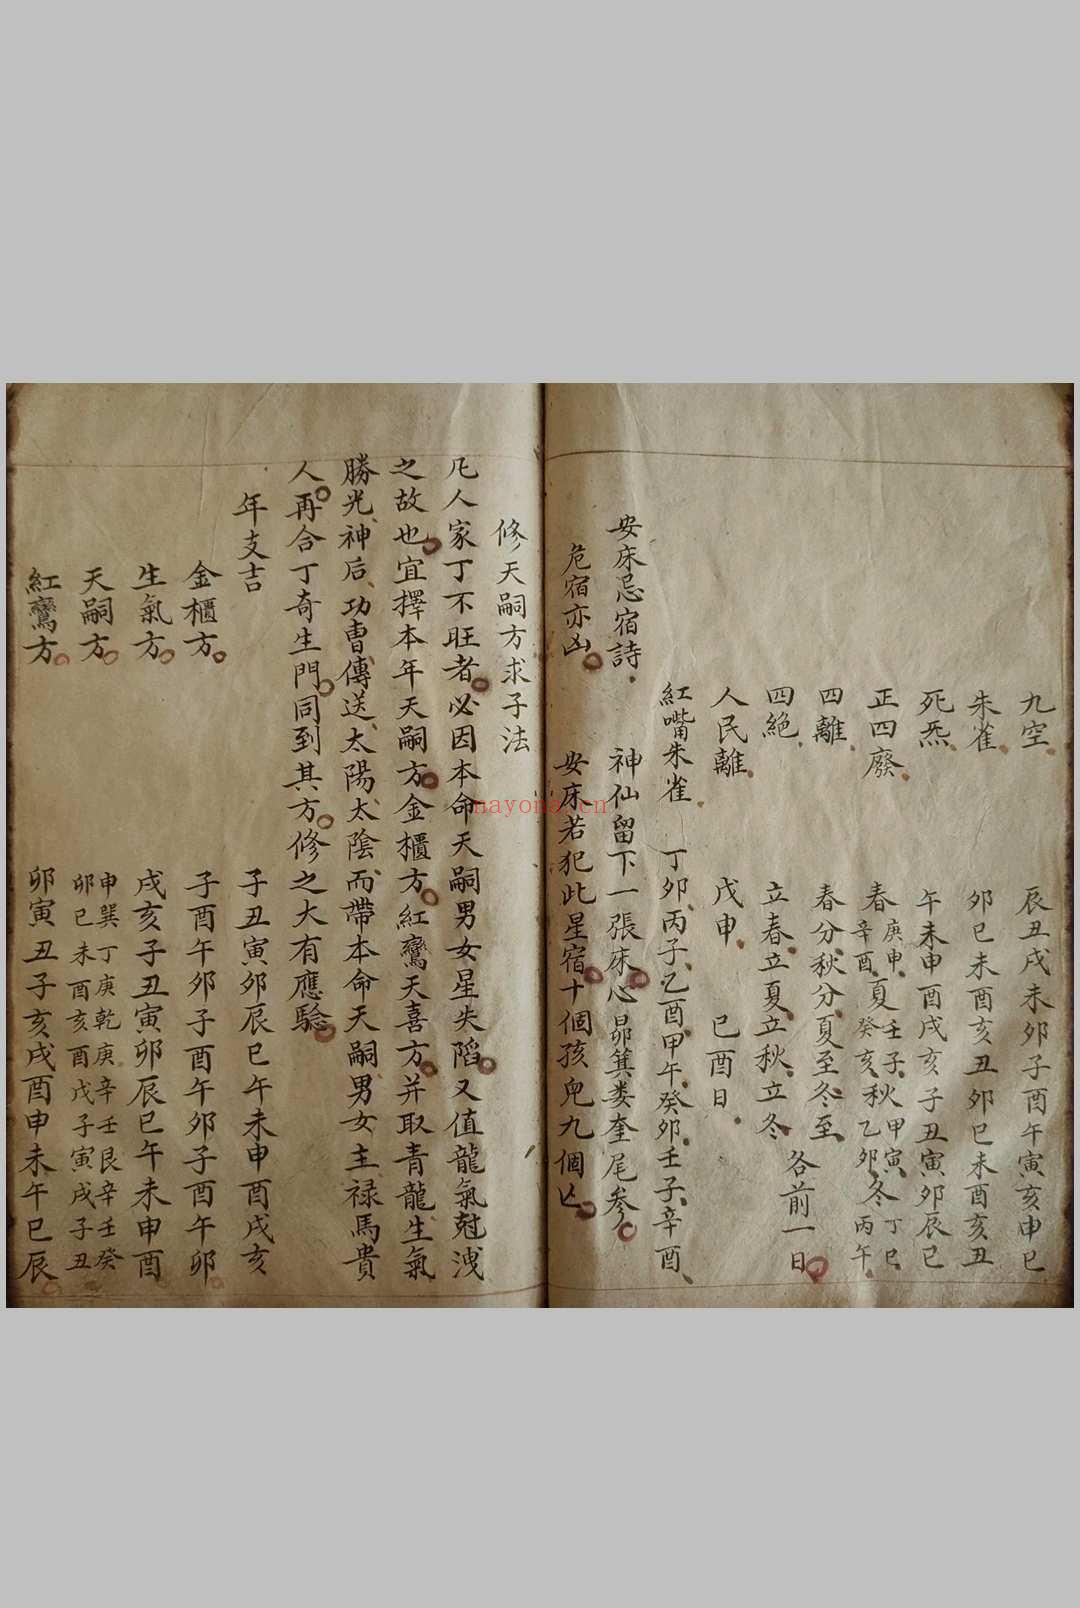 九空 辰丑戌未卯子酉午寅亥申巳
朱雀 卯巳未酉亥丑卯巳未酉亥丑
死炁 午未申酉戌亥子丑寅卯辰巳
正四廢 春庚申辛酉夏壬子癸亥秋甲寅乙卯冬丁巳丙午
四離 春分秋分夏至冬至
四絶 立春立夏立秋立冬 各前一日
人民離 戊申 己酉日
紅嘴朱雀 丁卯丙子乙酉甲午癸卯壬子辛酉
安床忌宿詩 神仙留下一張床心昴箕娄奎尾参
危宿亦凶 安床若犯此星宿十個孩兒九個亾
修天嗣方求子法
凡人家丁不旺者必因本命天嗣男女星失陷又值龍氣尅洩
之故也宜擇本年天嗣方金櫃方紅鸞天喜方并取青龍生氣
勝光神后功曹傳送太陽太陰而帶本命天嗣男女主禄馬貴
人再合丁奇生門同到其方修之大有應驗
年支吉 子丑寅卯辰巳午未申酉戌亥
金櫃方 子酉午卯子酉午卯子酉午卯
生氣方 戌亥子丑寅卯辰巳午未申酉
天嗣方 申巽丁庚乾庚辛壬艮辛壬癸
卯巳未酉亥酉戌子寅戌子丑
紅鸞方 卯寅丑子亥戌酉申未午巳辰
nayona.cn